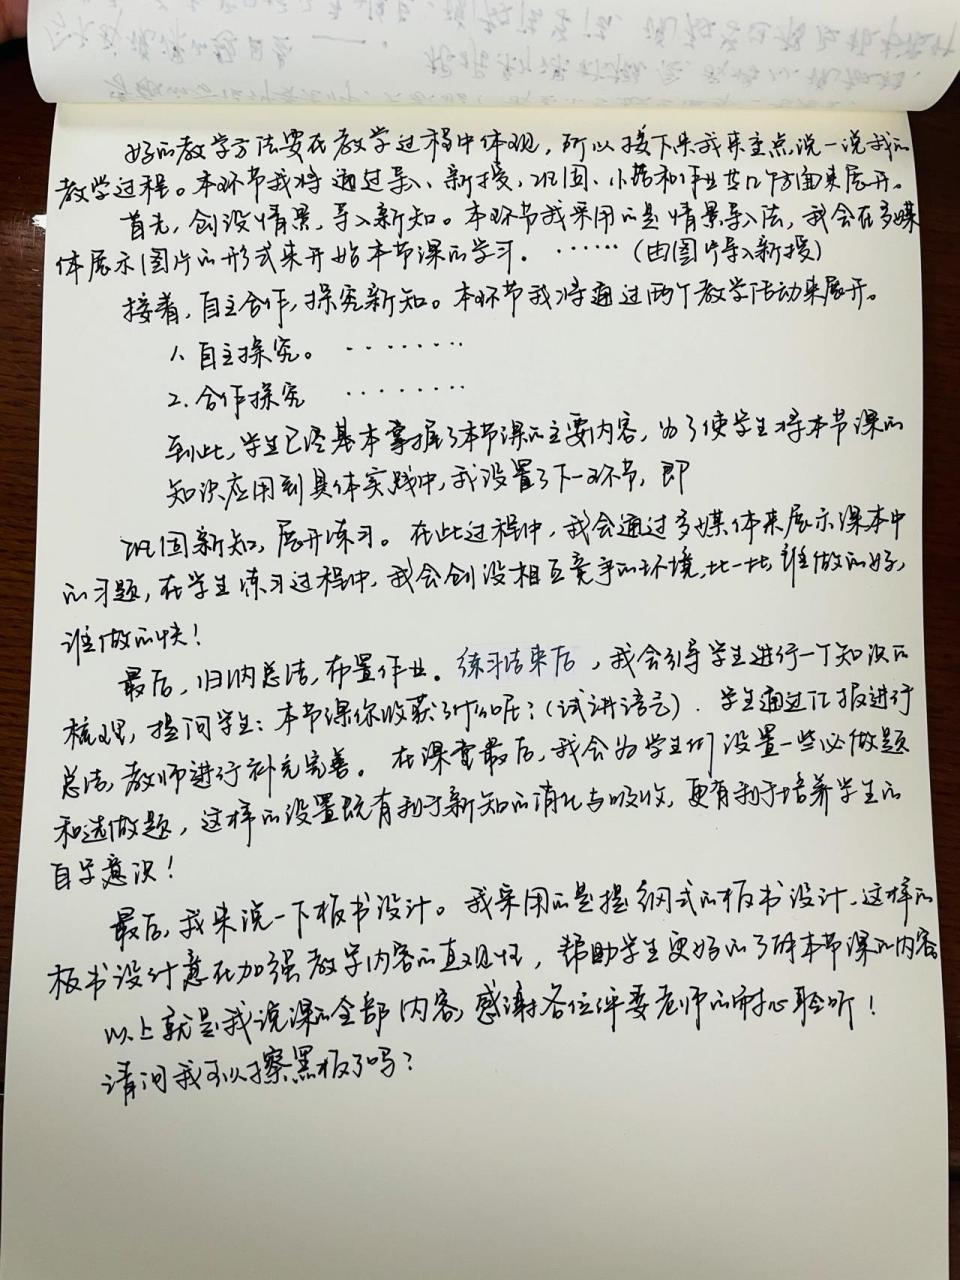 好的教学方法要在教学过程中体现，所以接下来我来重点说一说我的
教学过程。本环节我将通过导入、新授、巩固、小结和作业共几个方面来展开。
首先，创设情景，导入新知。本环节我采用的是情景导入法，我会在多媒
体展示图片的形式来开始本节课的学习．……（由图片导入新授）
接着，自主合作，探究新知。本环节我将通过两个教学活动来展开。
1、自主探究。 ········
2、合作探究 ········
到此，学生已经基本掌握了本节课的主要内容，为了使学生将本节课的
知识应用到具体实践中，我设置了下一环节，即
巩固新知，展开练习。在此过程中，我会通过多媒体来展示课本中
的习题，在学生练习过程中，我会创设相互竞争的环境，比一比谁做的好，
谁做的快！
最后，归纳总结，布置作业。练习结束后，我会引导学生进行一个知识的
梳理，提问学生：本节课你收获了什么呢？（试讲语言）．学生通过汇报进行
总结，教师进行补充完善。在课堂最后，我会为学生们设置一些必做题
和选做题，这样的设置既有利于新知的消化与吸收，更有利于培养学生的
自学意识！
最后，我来说一下板书设计。我采用的是提纲式的板书设计，这样的
板书设计意在加强教学内容的直观性，帮助学生更好的了解本节课的内容。
以上就是我说课的全部内容，感谢各位评委老师的耐心聆听！
请问我可以擦黑板了吗？